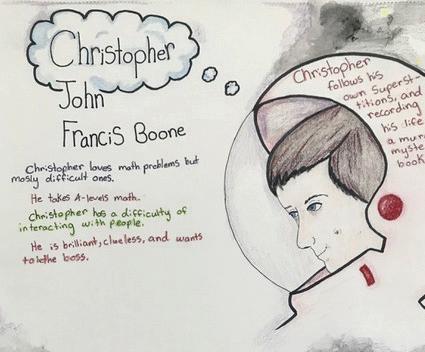 Christopher
John
Francis Boone
Christopher loves math problems but
mosly difficult ones.
He takes A-levels math.
Christopher has a difficulty of
interacting with people.
He is brilliant, clueless, and wants
the boss.
Christopher
follows his
own Superst-
titions, and
recording
his life
a mur
myste
book